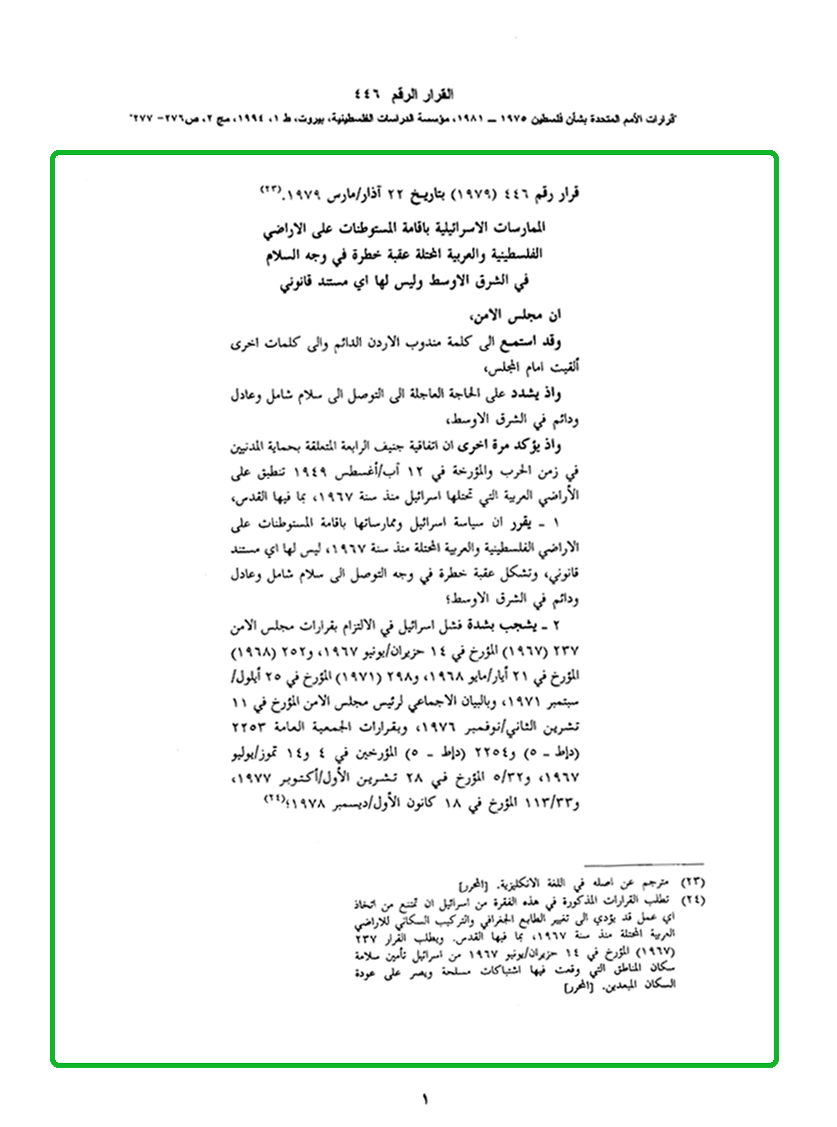 القرار الرقم ٤٤٦
"قرارات الأمم المتحدة بشأن فلسطين ١٩٧٥ – ١٩٨١، مؤسسة الدراسات الفلسطينية، بيروت، ط ١، ١٩٩٤، مج ٢، ص٢٧٦– ٢٧٧"
قرار رقم ٤٤٦ (١٩٧٩) بتاريخ ٢٢ آذار/مارس ١٩٧٩.(٢٣)
الممارسات الاسرائيلية باقامة المستوطنات على الاراضي
الفلسطينية والعربية المحتلة عقبة خطرة في وجه السلام
في الشرق الاوسط وليس لها اي مستند قانوني
ان مجلس الامن،
وقد استمع الى كلمة مندوب الاردن الدائم والى كلمات اخرى
ألقيت امام المجلس،
واذ يشدد على الحاجة العاجلة الى التوصل الى سلام شامل وعادل
ودائم في الشرق الاوسط،
واذ يؤكد مرة اخرى ان اتفاقية جنيف الرابعة المتعلقة بحماية المدنيين
في زمن الحرب والمؤرخة في ١٢ آب/أغسطس ١٩٤٩ تنطبق على
الأراضي العربية التي تحتلها اسرائيل منذ سنة ١٩٦٧، بما فيها القدس،
١ ـ يقرر ان سياسة اسرائيل وممارساتها باقامة المستوطنات على
الاراضي الفلسطينية والعربية المحتلة منذ سنة ١٩٦٧، ليس لها اي مستند
قانوني، وتشكل عقبة خطرة في وجه التوصل الى سلام شامل وعادل
ودائم في الشرق الاوسط؛
٢ ـ يشجب بشدة فشل اسرائيل في الالتزام بقرارات مجلس الامن
٢٣٧ (١٩٦٧) المؤرخ في ١٤ حزيران/يونيو ١٩٦٧، و٢٥٢ (١٩٦٨)
المؤرخ في ٢١ أيار/مايو ١٩٦٨، و٢٩٨ (١٩٧١) المؤرخ في ٢٥ أيلول/
سبتمبر ١٩٧١، وبالبيان الاجماعي لرئيس مجلس الامن المؤرخ في ١١
تشرين الثاني/نوفمبر ١٩٧٦، وبقرارات الجمعية العامة ٢٢٥٣
(دإط ـ ٥) و٢٢٥٤ (دإط ـ ٥) المؤرخين في ٤ و١٤ تموز/يوليو
١٩٦٧، و٥/٣٢ المؤرخ في ٢٨ تشرين الأول/أكتوبر ١٩٧٧،
و١١٣/٣٣ المؤرخ في ١٨ كانون الأول/ديسمبر ١٩٧٨؛(٢٤)
(٢٣) مترجم عن اصله في اللغة الانكليزية. [المحرر]
(٢٤) تطلب القرارات المذكورة في هذه الفقرة من اسرائيل ان تمتنع من اتخاذ
اي عمل قد يؤدي الى تغيير الطابع الجغرافي والتركيب السكاني للاراضي
العربية المحتلة منذ سنة ١٩٦٧، بما فيها القدس. ويطلب القرار ٢٣٧
(١٩٦٧) المؤرخ في ١٤ حزيران/يونيو ١٩٦٧ من اسرائيل تأمين سلامة
سكان المناطق التي وقعت فيها اشتباكات مسلحة ويصر على عودة
السكان المبعدين. [المحرر]
١